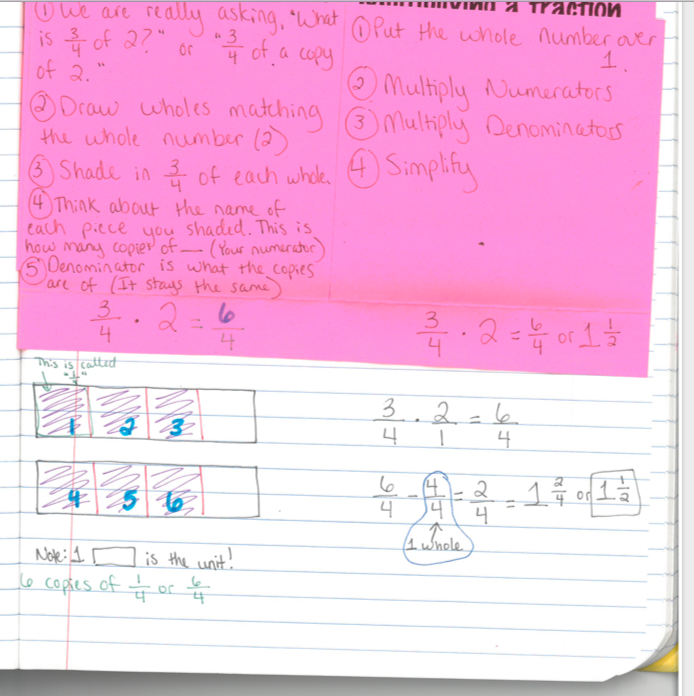 ① We are really asking, "What
is 3/4 of 2?" or "3/4 of a copy
of 2."
② Draw wholes matching
the whole number (2)
③ Shade in 3/4 of each whole.
④ Think about the name of
each piece you shaded. This is
how many copies of — (Your numerator)
⑤ Denominator is what the copies
are of (It stays the same)
3/4 · 2 = 6/4
a fraction
① Put the whole number over
1.
② Multiply Numerators
③ Multiply Denominators
④ Simplify
3/4 · 2 = 6/4 or 1 1/2
This is called
"1/4"
1 2 3
4 5 6
Note: 1 is the unit!
6 copies of 1/4 or 6/4
3/4 · 2/1 = 6/4
6/4 - 4/4 = 2/4 = 1 2/4 or 1 1/2
1 whole